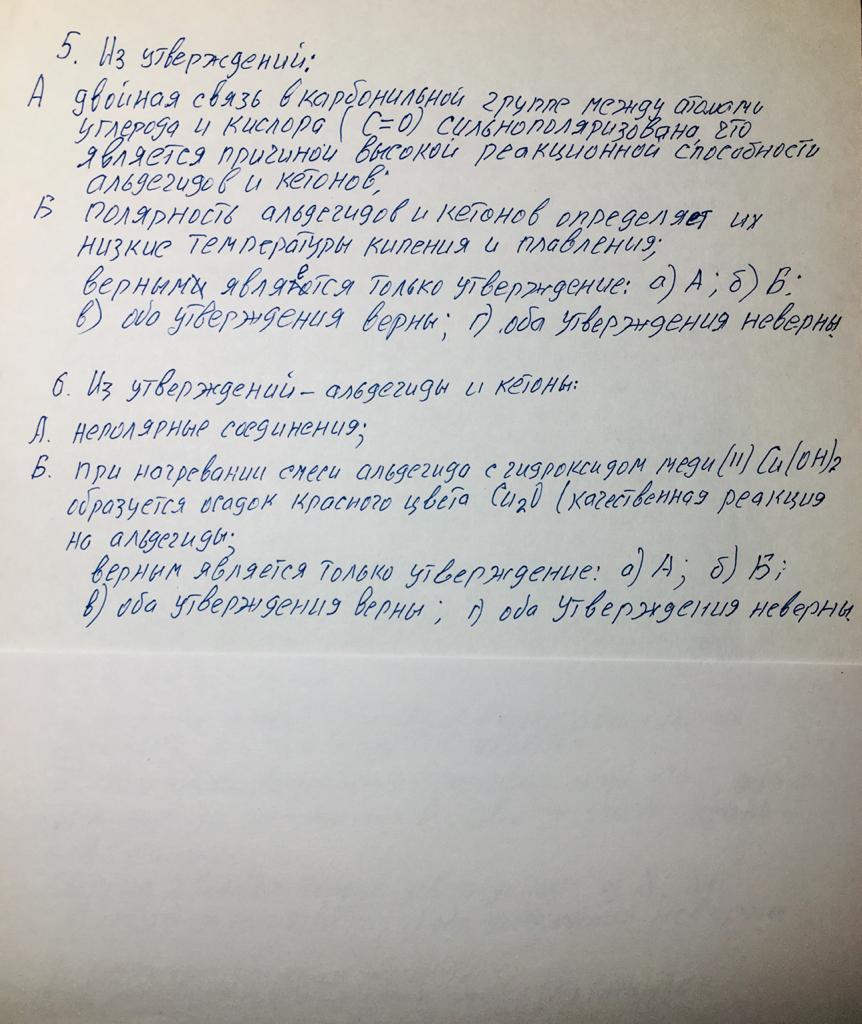 5. Из утверждений:
А двойная связь в карбонильной группе между атомами
углерода и кислора (С=О) сильнополяризована, что
является причиной высокой реакционной способности
альдегидов и кетонов;
Б полярность альдегидов и кетонов определяет их
низкие температуры кипения и плавления;
верным является только утверждение: а) А; б) Б;
в) оба утверждения верны; г) оба утверждения неверны.
6. Из утверждений - альдегиды и кетоны:
А. неполярные соединения;
Б. при нагревании смеси альдегида с гидроксидом меди (II) Cu(OH)2
образуется осадок красного цвета Cu2O (качественная реакция
на альдегиды;
верным является только утверждение: а) А; б) Б;
в) оба утверждения верны; г) оба утверждения неверны.